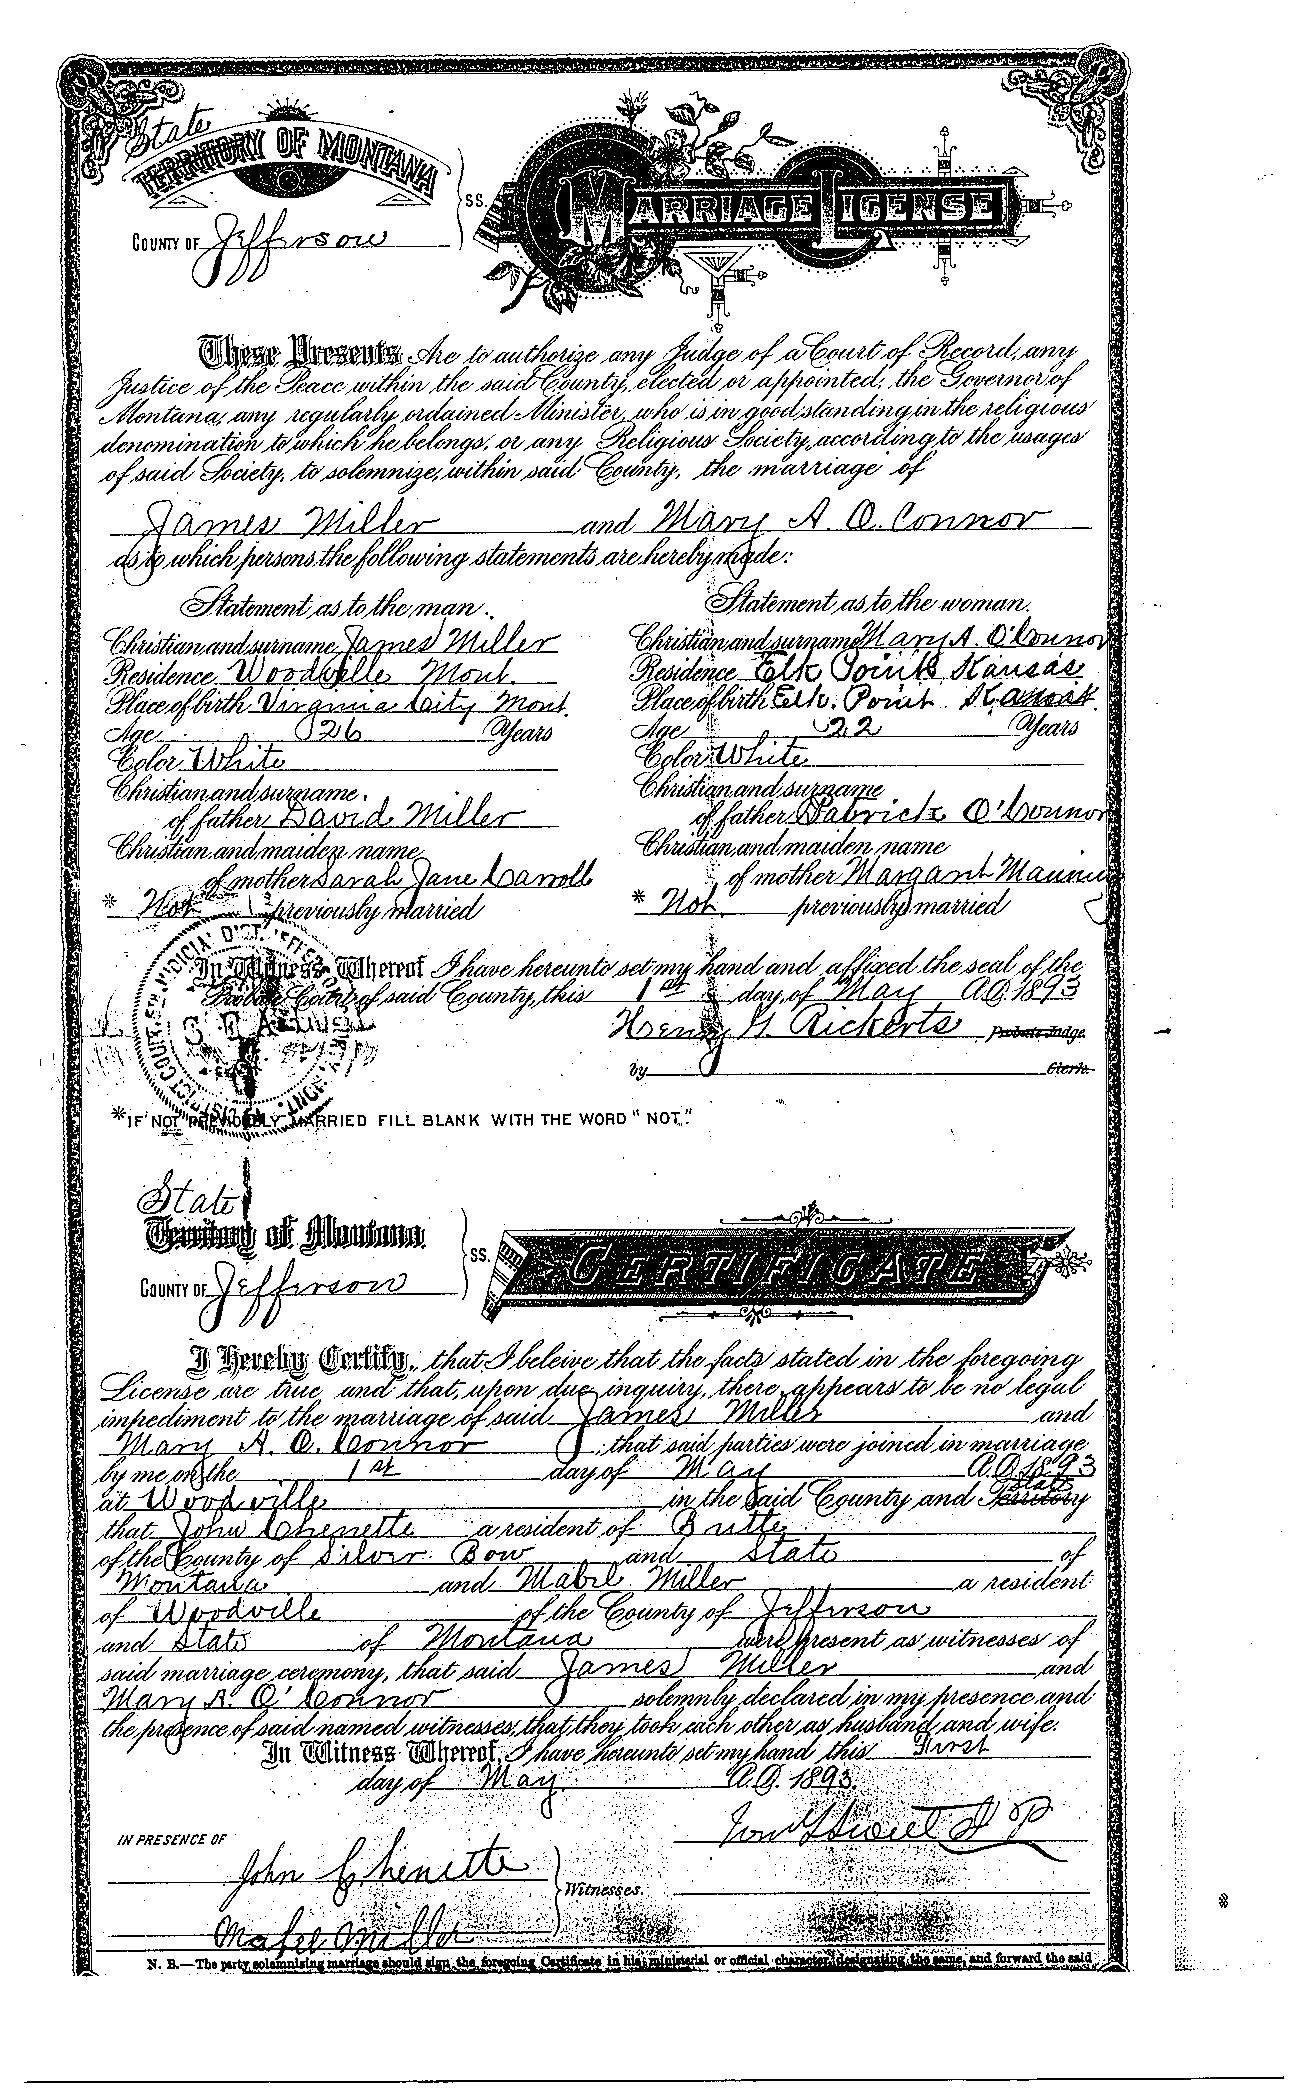 State
TERRITORY OF MONTANA
SS.
MARRIAGE LICENSE
COUNTY OF Jefferson
These Presents Are to authorize any Judge of a Court of Record, any
Justice of the Peace within the said County, elected or appointed, the Governor of
Montana, any regularly ordained Minister, who is in good standing in the religious
denomination to which he belongs, or any Religious Society, according to the usages
of said Society, to solemnize, within said County, the marriage of
James Miller and Mary A. O. Connor
as to which persons the following statements are hereby made:
Statement as to the man.
Christian and surname James Miller
Residence Woodville Mont.
Place of birth Virginia City Mont.
Age 26 Years
Color White
Christian and surname
of father David Miller
Christian and maiden name
of mother Sarah Jane Carroll
* Not previously married
Statement as to the woman.
Christian and surname Mary A. O'Connor
Residence Elk Point Kansas
Place of birth Elk Point Kansas.
Age 22 Years
Color White
Christian and surname
of father Patrick O'Connor
Christian and maiden name
of mother Margaret
* Not previously married
In Witness Whereof I have hereunto set my hand and affixed the seal of the
Probate Court of said County, this 1st day of May A.D. 1893
Henry G. Rickerts Probate Judge
by Clerk.
SEAL
*IF NOT PREVIOUSLY MARRIED FILL BLANK WITH THE WORD "NOT."
State
Territory of Montana
SS.
CERTIFICATE
COUNTY OF Jefferson
I Hereby Certify, that I beleive that the facts stated in the foregoing
License are true and that, upon due inquiry, there appears to be no legal
impediment to the marriage of said James Miller and
Mary A. O. Connor that said parties were joined in marriage
by me on the 1st day of May A.D. 1893
State
at Woodville in the said County and Territory
that John Chenette a resident of Butte
of the County of Silver Bow and State of
Montana and Mabel Miller a resident
of Woodville of the County of Jefferson
and State of Montana were present as witnesses of
said marriage ceremony, that said James Miller and
Mary A. O'Connor solemnly declared in my presence and
the presence of said named witnesses, that they took each other as husband and wife.
In Witness Whereof, I have hereunto set my hand this First
day of May A.D. 1893.
J P
IN PRESENCE OF
John Chenette
Witnesses.
Mabel Miller
N. B.—The party solemnizing marriage should sign the foregoing Certificate in his ministerial or official character, designating the same, and forward the said